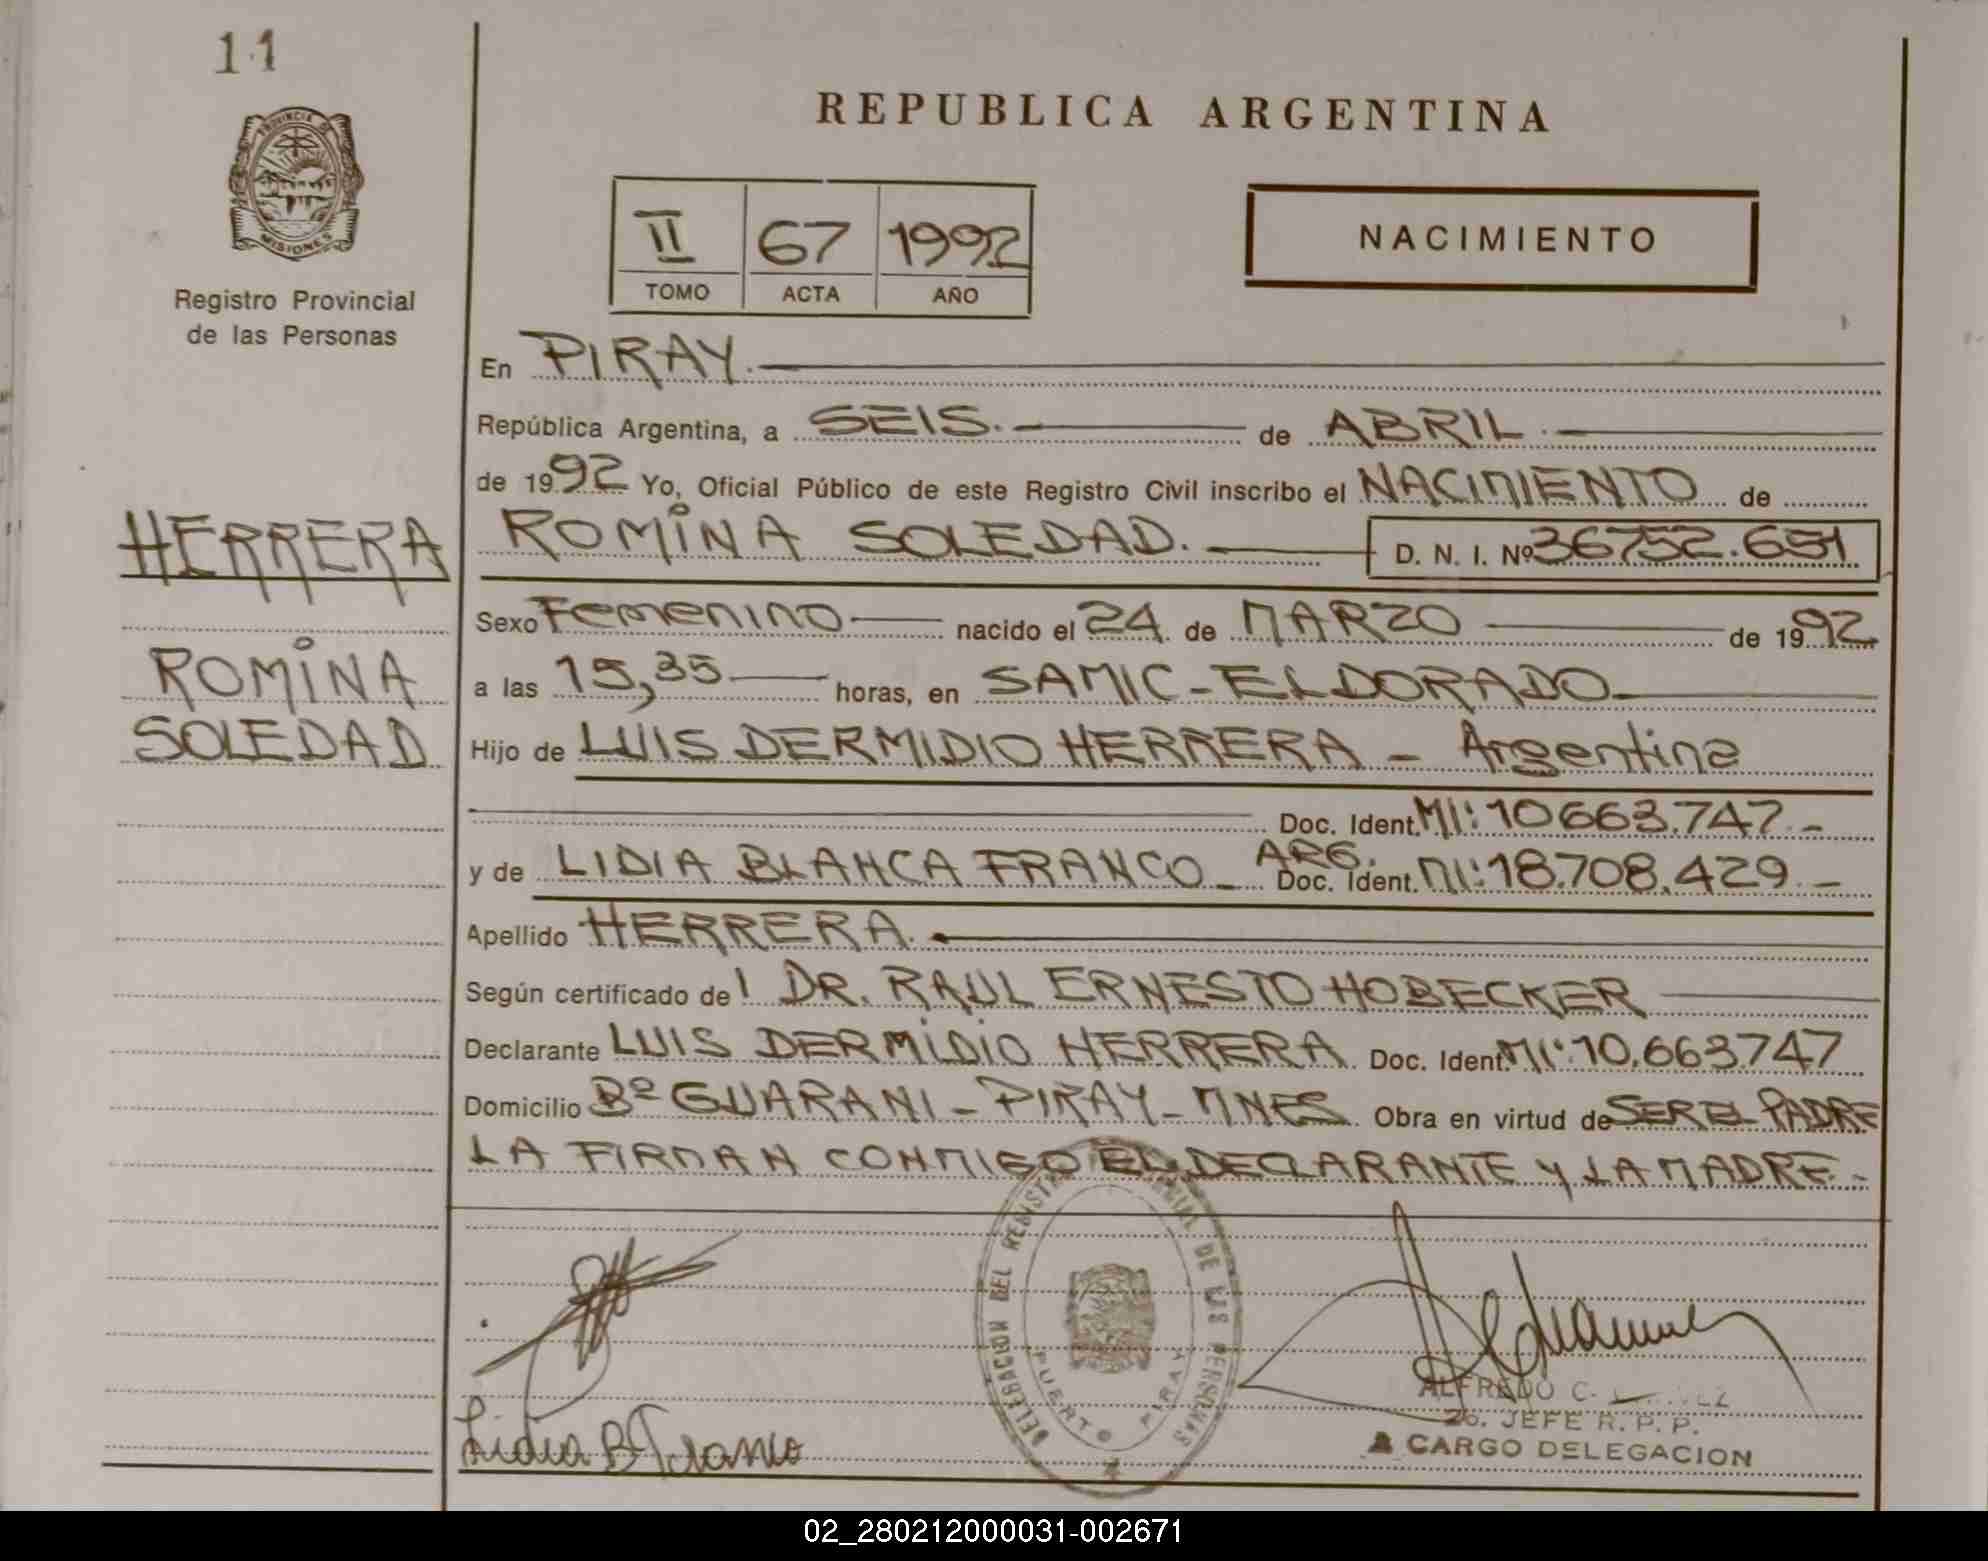 11
REPUBLICA ARGENTINA
PROVINCIA DE
MISIONES
Registro Provincial
de las Personas
II 67 1992
TOMO ACTA AÑO
NACIMIENTO
En PIRAY.
República Argentina, a SEIS. de ABRIL.
de 1992 Yo, Oficial Público de este Registro Civil inscribo el NACIMIENTO de
HERRERA
ROMINA SOLEDAD. D. N. I. Nº 36752.651
Sexo Femenino nacido el 24 de MARZO de 1992
ROMINA
SOLEDAD
a las 15,35 horas, en SAMIC-ELDORADO
Hijo de LUIS DERMIDIO HERRERA - Argentina
Doc. Ident. MI: 10663.747.-
y de LIDIA BLANCA FRANCO - ARG. Doc. Ident. MI: 18.708.429.-
Apellido HERRERA.
Según certificado del DR. RAUL ERNESTO HOBECKER
Declarante LUIS DERMIDIO HERRERA Doc. Ident. MI: 10.663.747
Domicilio Bº GUARANI - PIRAY - MNES. Obra en virtud de SER EL PADRE
LA FIRMAN CONMIGO EL DECLARANTE Y LA MADRE.-
DELEGACION DEL REGISTRO PROVINCIAL DE LAS PERSONAS
PUERTO PIRAY
Lidia B Franco
ALFREDO C.
2o. JEFE R. P. P.
A CARGO DELEGACION
02_280212000031-002671